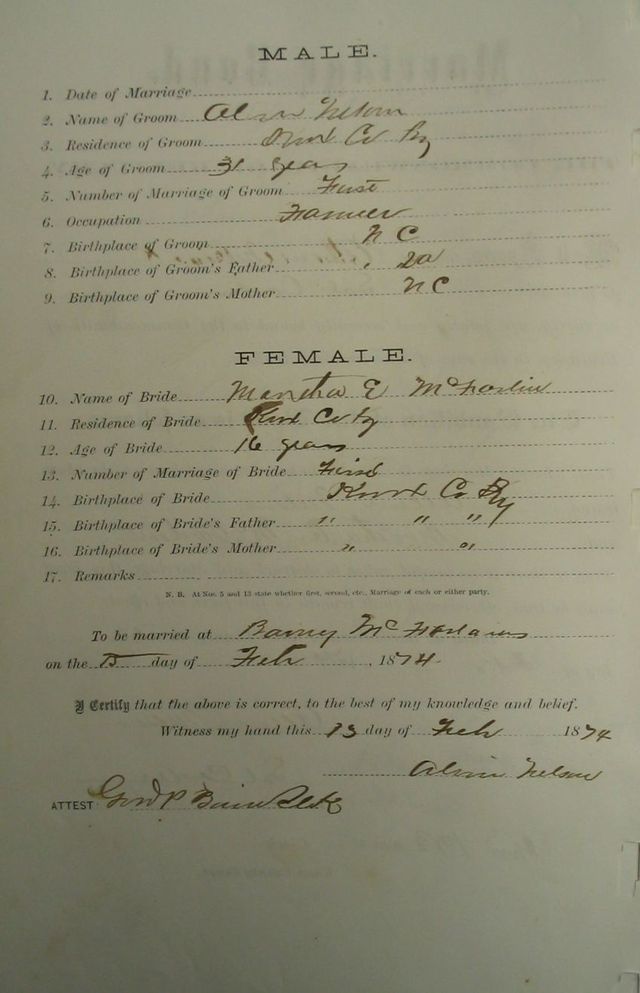 MALE.
1. Date of Marriage
2. Name of Groom Alvin Nelson
3. Residence of Groom Knox Co Ky
4. Age of Groom 31 years
5. Number of Marriage of Groom First
6. Occupation Farmer
7. Birthplace of Groom N C
8. Birthplace of Groom's Father Va
9. Birthplace of Groom's Mother N C
FEMALE.
10. Name of Bride Martha E
11. Residence of Bride Knox Co Ky
12. Age of Bride 16 years
13. Number of Marriage of Bride First
14. Birthplace of Bride Knox Co Ky
15. Birthplace of Bride's Father " " "
16. Birthplace of Bride's Mother " "
17. Remarks
N. B. At Nos. 5 and 13 state whether first, second, etc., Marriage of each or either party.
To be married at Barney
on the day of Feb , 1874.
I Certify that the above is correct, to the best of my knowledge and belief.
Witness my hand this 13 day of Feb 1874
Alvin Nelson
ATTEST: